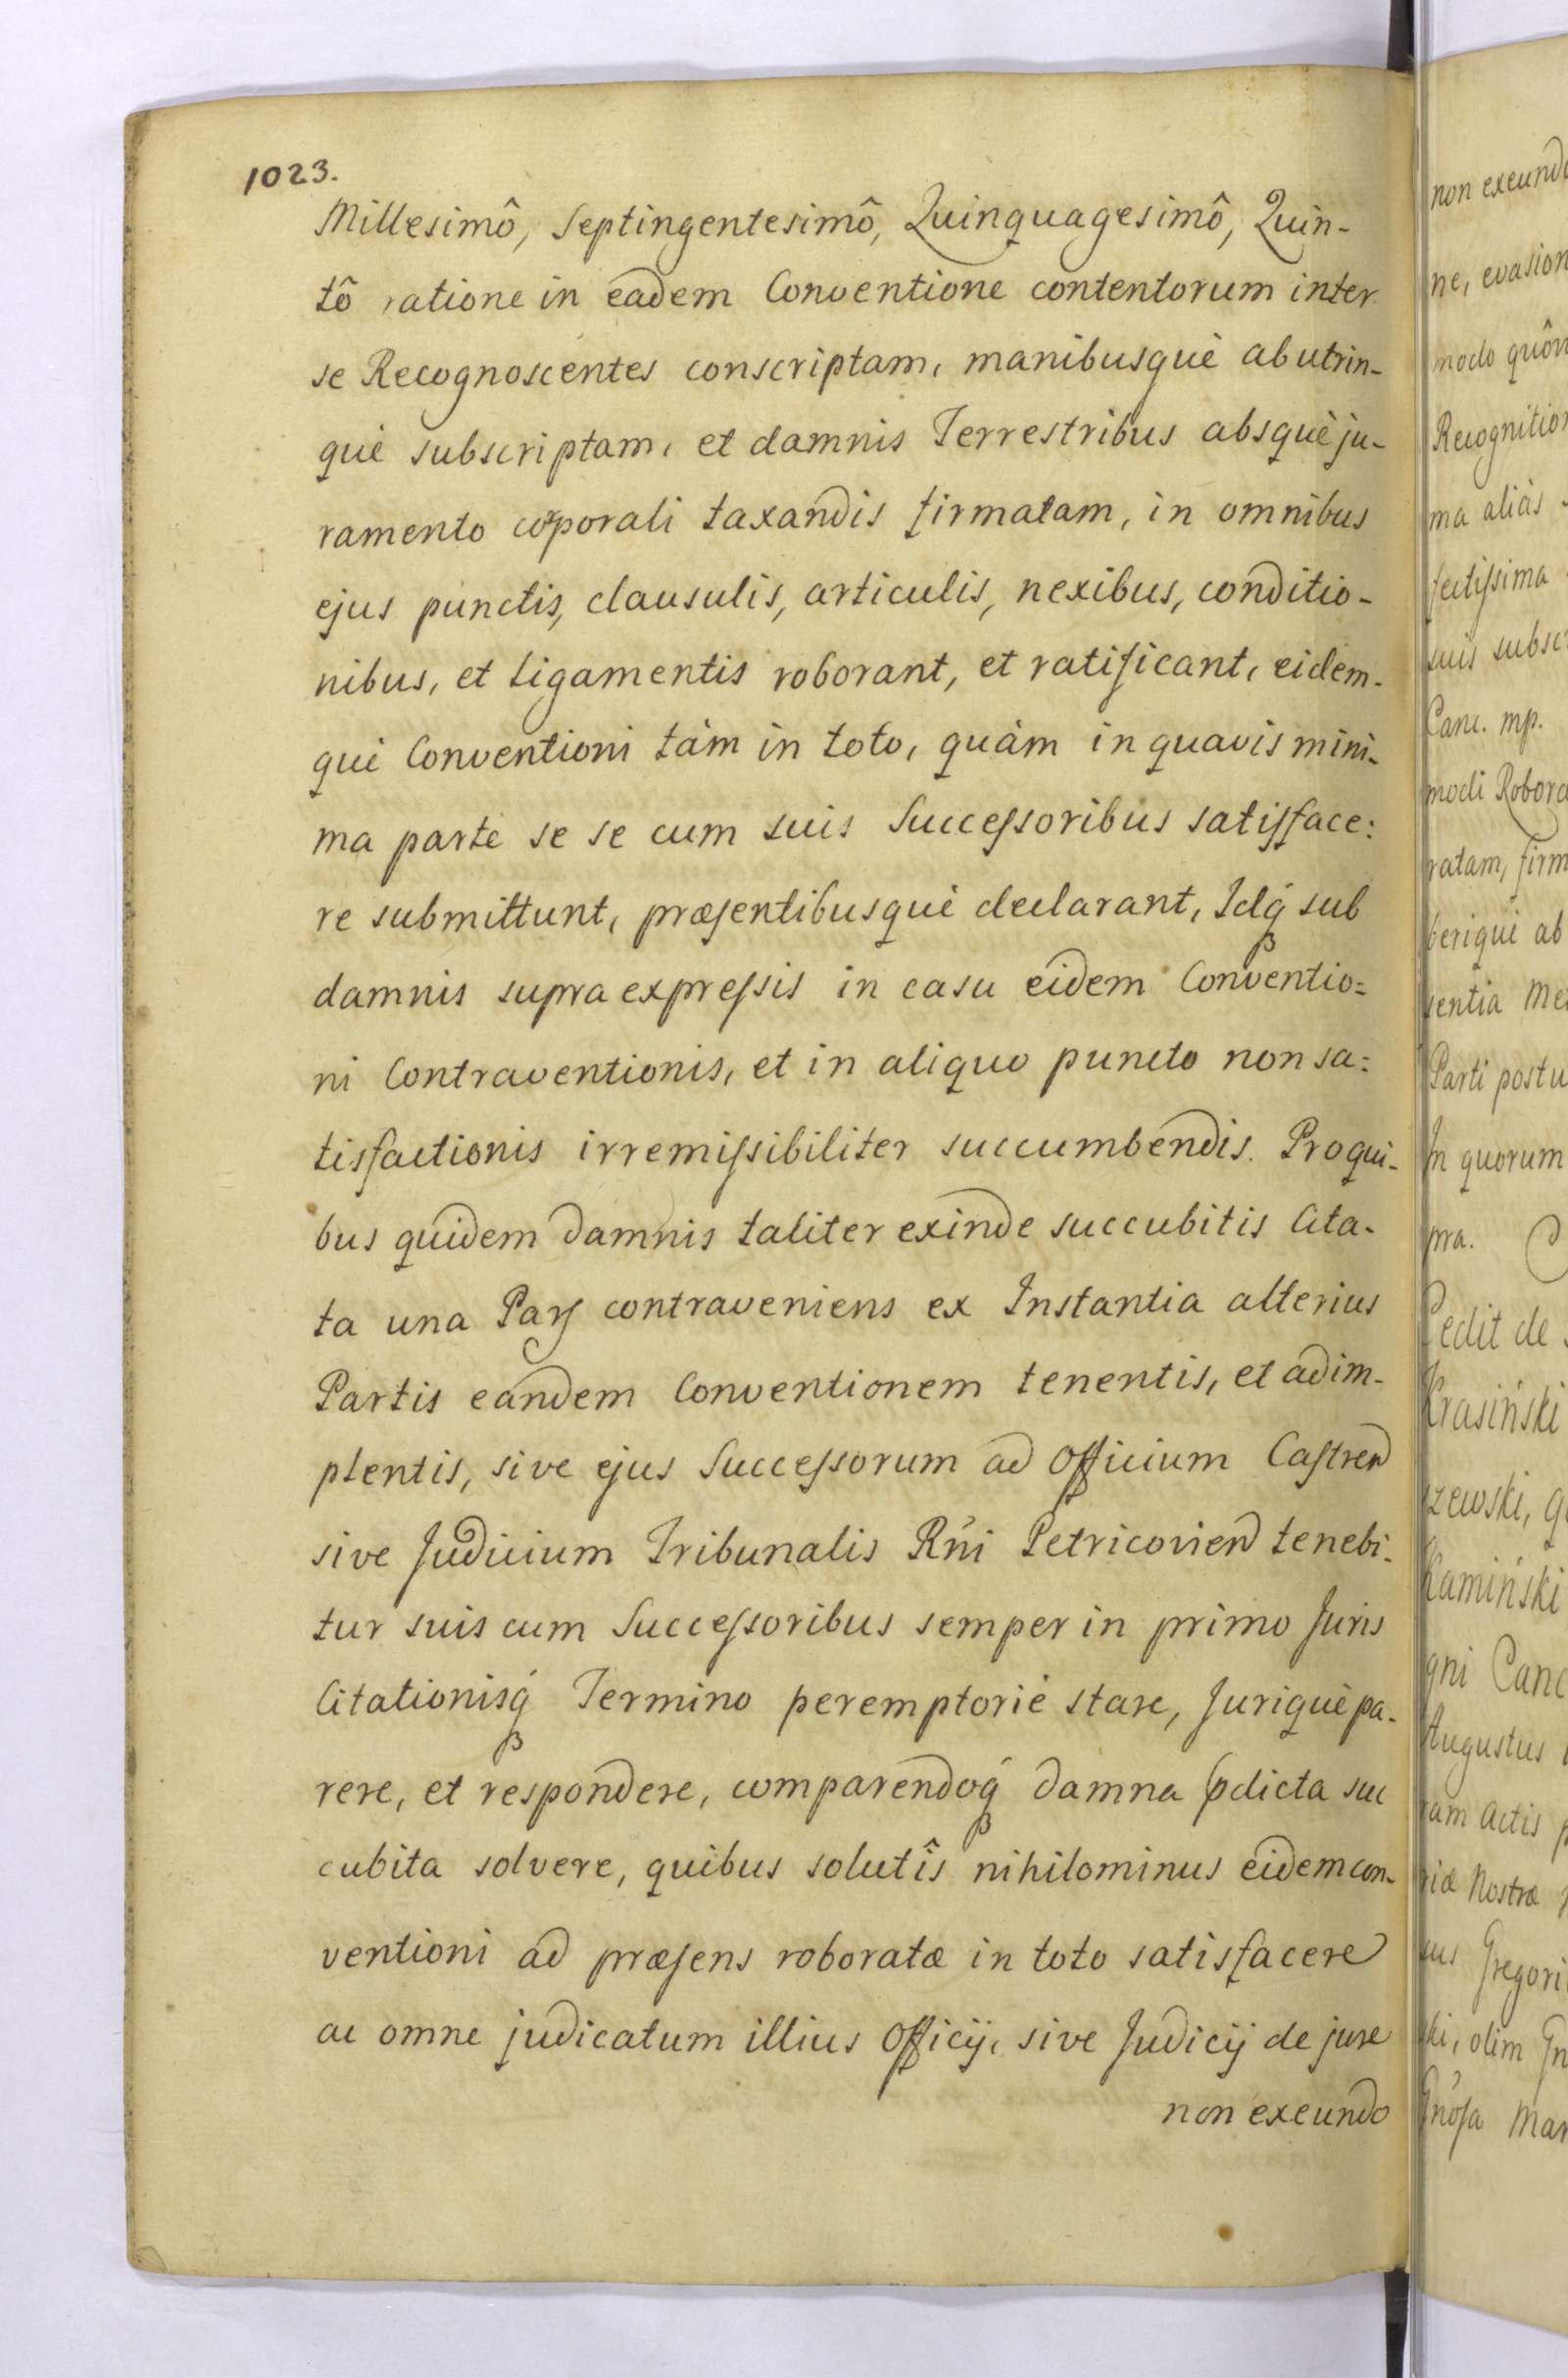 1023.
Millesimô, Septingentesimô, Quinquagesimô, Quin-
tô ratione in eadem Conventione contentorum inter
se Recognoscentes conscriptam, manibusquè ab utrin-
què subscriptam, et damnis Terrestribus absquè ju-
ramento corporali taxandis firmatam, in omnibus
ejus punctis, clausulis, articulis, nexibus, conditio-
nibus, et ligamentis roborant, et ratificant, eidem-
què Conventioni tàm in toto, quàm in quavis mini-
ma parte se se cum suis Successoribus satisface:
re submittunt, præsentibusquè declarant, Idq́ sub
damnis supra expressis in casu eidem Conventio=
ni Contraventionis, et in aliquo puncto non sa:
tisfactionis irremissibiliter succumbendis. Pro qui-
bus quidem damnis taliter exinde succubitis Cita-
ta una Pars contraveniens ex Instantia alterius
Partis eandem Conventionem tenentis, et adim-
plentis, sive ejus Successorum ad Officium Castren
sive Judicium Tribunalis Rńi Petricovien tenebi-
tur suis cum Successoribus semper in primo Juris
Citationisq́ Termino peremptoriè stare, Juriquè pa-
rere, et respondere, comparendoq́ damna pdicta suc
cubita solvere, quibus solutîs nihilominus eidem con-
ventioni ad præsens roboratæ in toto satisfacere
ac omne judicatum illius Officij, sive Judicij de jure
non exeundo
non exeundo
ne, evasion
modo quôv
Recognition
ma aliàs
fectissima
suis subsc
Canc. mp.
modi Robora
ratam, firm
beriquè ab
sentia Me
Parti postu
In quorum
pra.
Cedit de
Krasiński
szewski, q
Kamiński
gni Canc
Augustus
ram Actis p
riæ Nostræ
sus Gregori
ski, olim Gn
Gnósa Mar